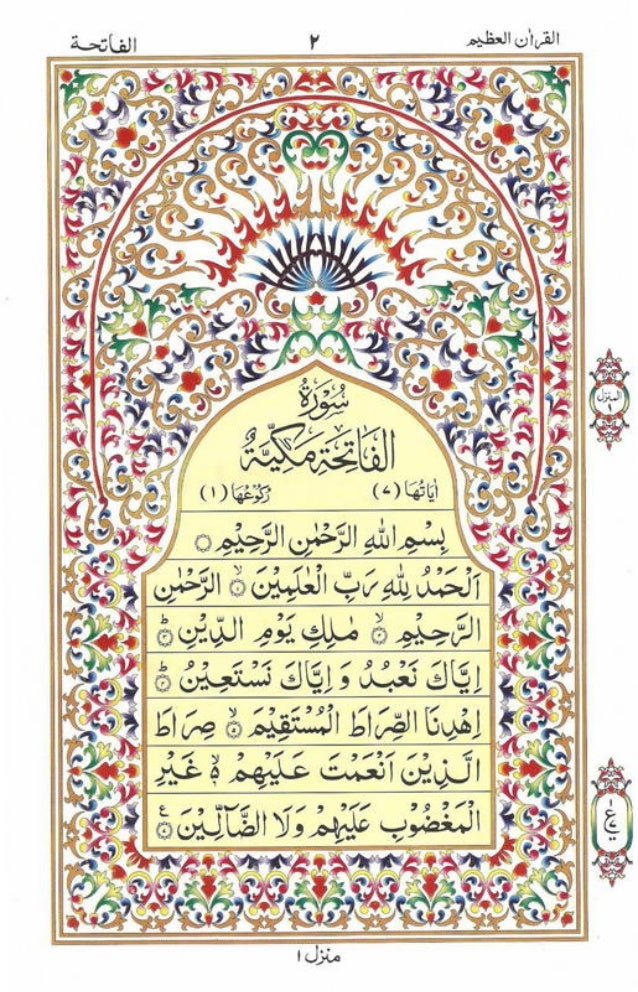 القراٰن العظیم ٢ الفاتحة
سُوْرَةُ
الْفَاتِحَةِ مَكِّیَّةٌ
اٰیَاتُهَا (٧) رُكُوْعُهَا (١)
بِسْمِ اللّٰهِ الرَّحْمٰنِ الرَّحِیْمِ ۝
اَلْحَمْدُ لِلّٰهِ رَبِّ الْعٰلَمِیْنَ ۙ﴿١﴾ الرَّحْمٰنِ
الرَّحِیْمِ ۙ﴿٢﴾ مٰلِكِ یَوْمِ الدِّیْنِ ؕ﴿٣﴾
اِیَّاكَ نَعْبُدُ وَ اِیَّاكَ نَسْتَعِیْنُ ؕ﴿٤﴾
اِهْدِنَا الصِّرَاطَ الْمُسْتَقِیْمَ ۙ﴿٥﴾ صِرَاطَ
الَّذِیْنَ اَنْعَمْتَ عَلَیْهِمْ ۙ۬ غَیْرِ
الْمَغْضُوْبِ عَلَیْهِمْ وَلَا الضَّآلِّیْنَ
المنزل
١
ع
منزل ١